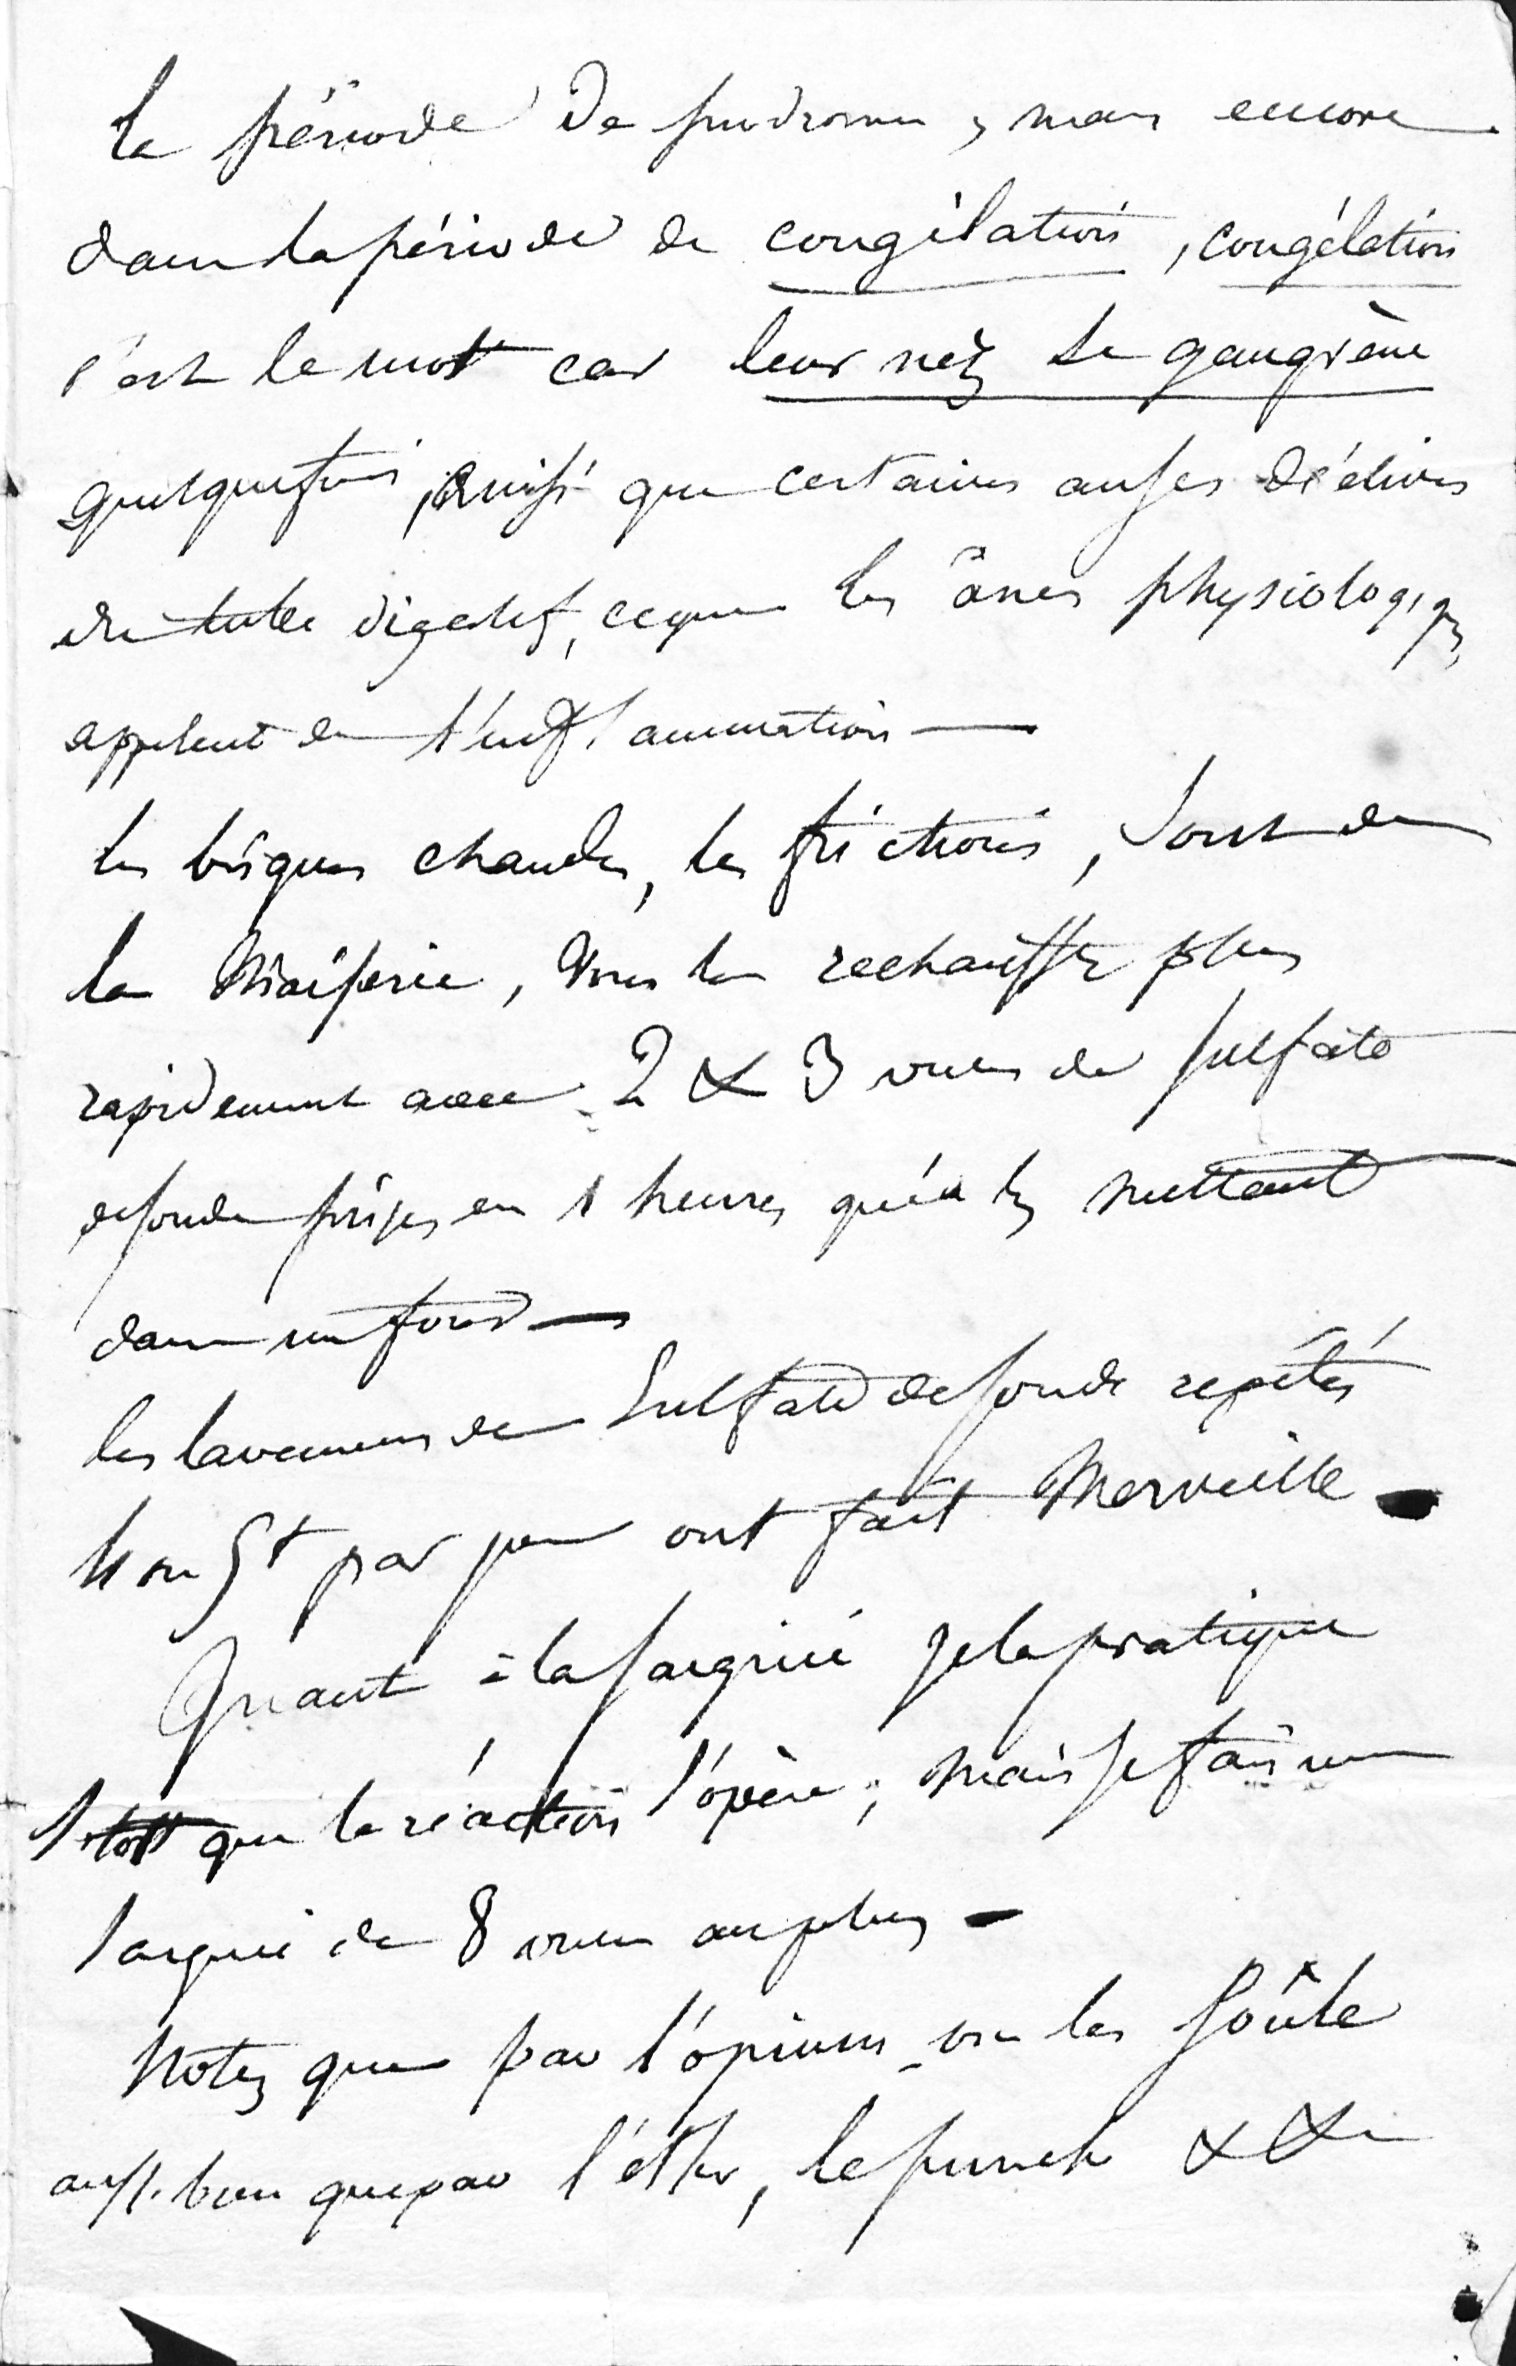 la période de prodrome, mais encore
dans la période de congélation, congélation
c'est le mot car leur nez se gangrène
quelquefois, ainsi que certaines anses déclives
du tube digestif, ce que les ânes physiologiq
appelent de l'inflammation —
les briques chaudes, les frictions, sont de
la niaiserie, vous les rechauffez plus
rapidement avec 2 & 3 onces de sulfate
de soude prises en 1 heures qu'en les mettant
dans un four —
les lavemens de Sulfate de soude repétés
4 ou 5 f par jour ont fait Merveille —
Quant à la saignée je la pratique
sitot que la réaction s'opère, mais je fais une
saignée de 8 onces au plus —
Notez que par l'opium on les
aussi bien que par l'éther, le punch &&